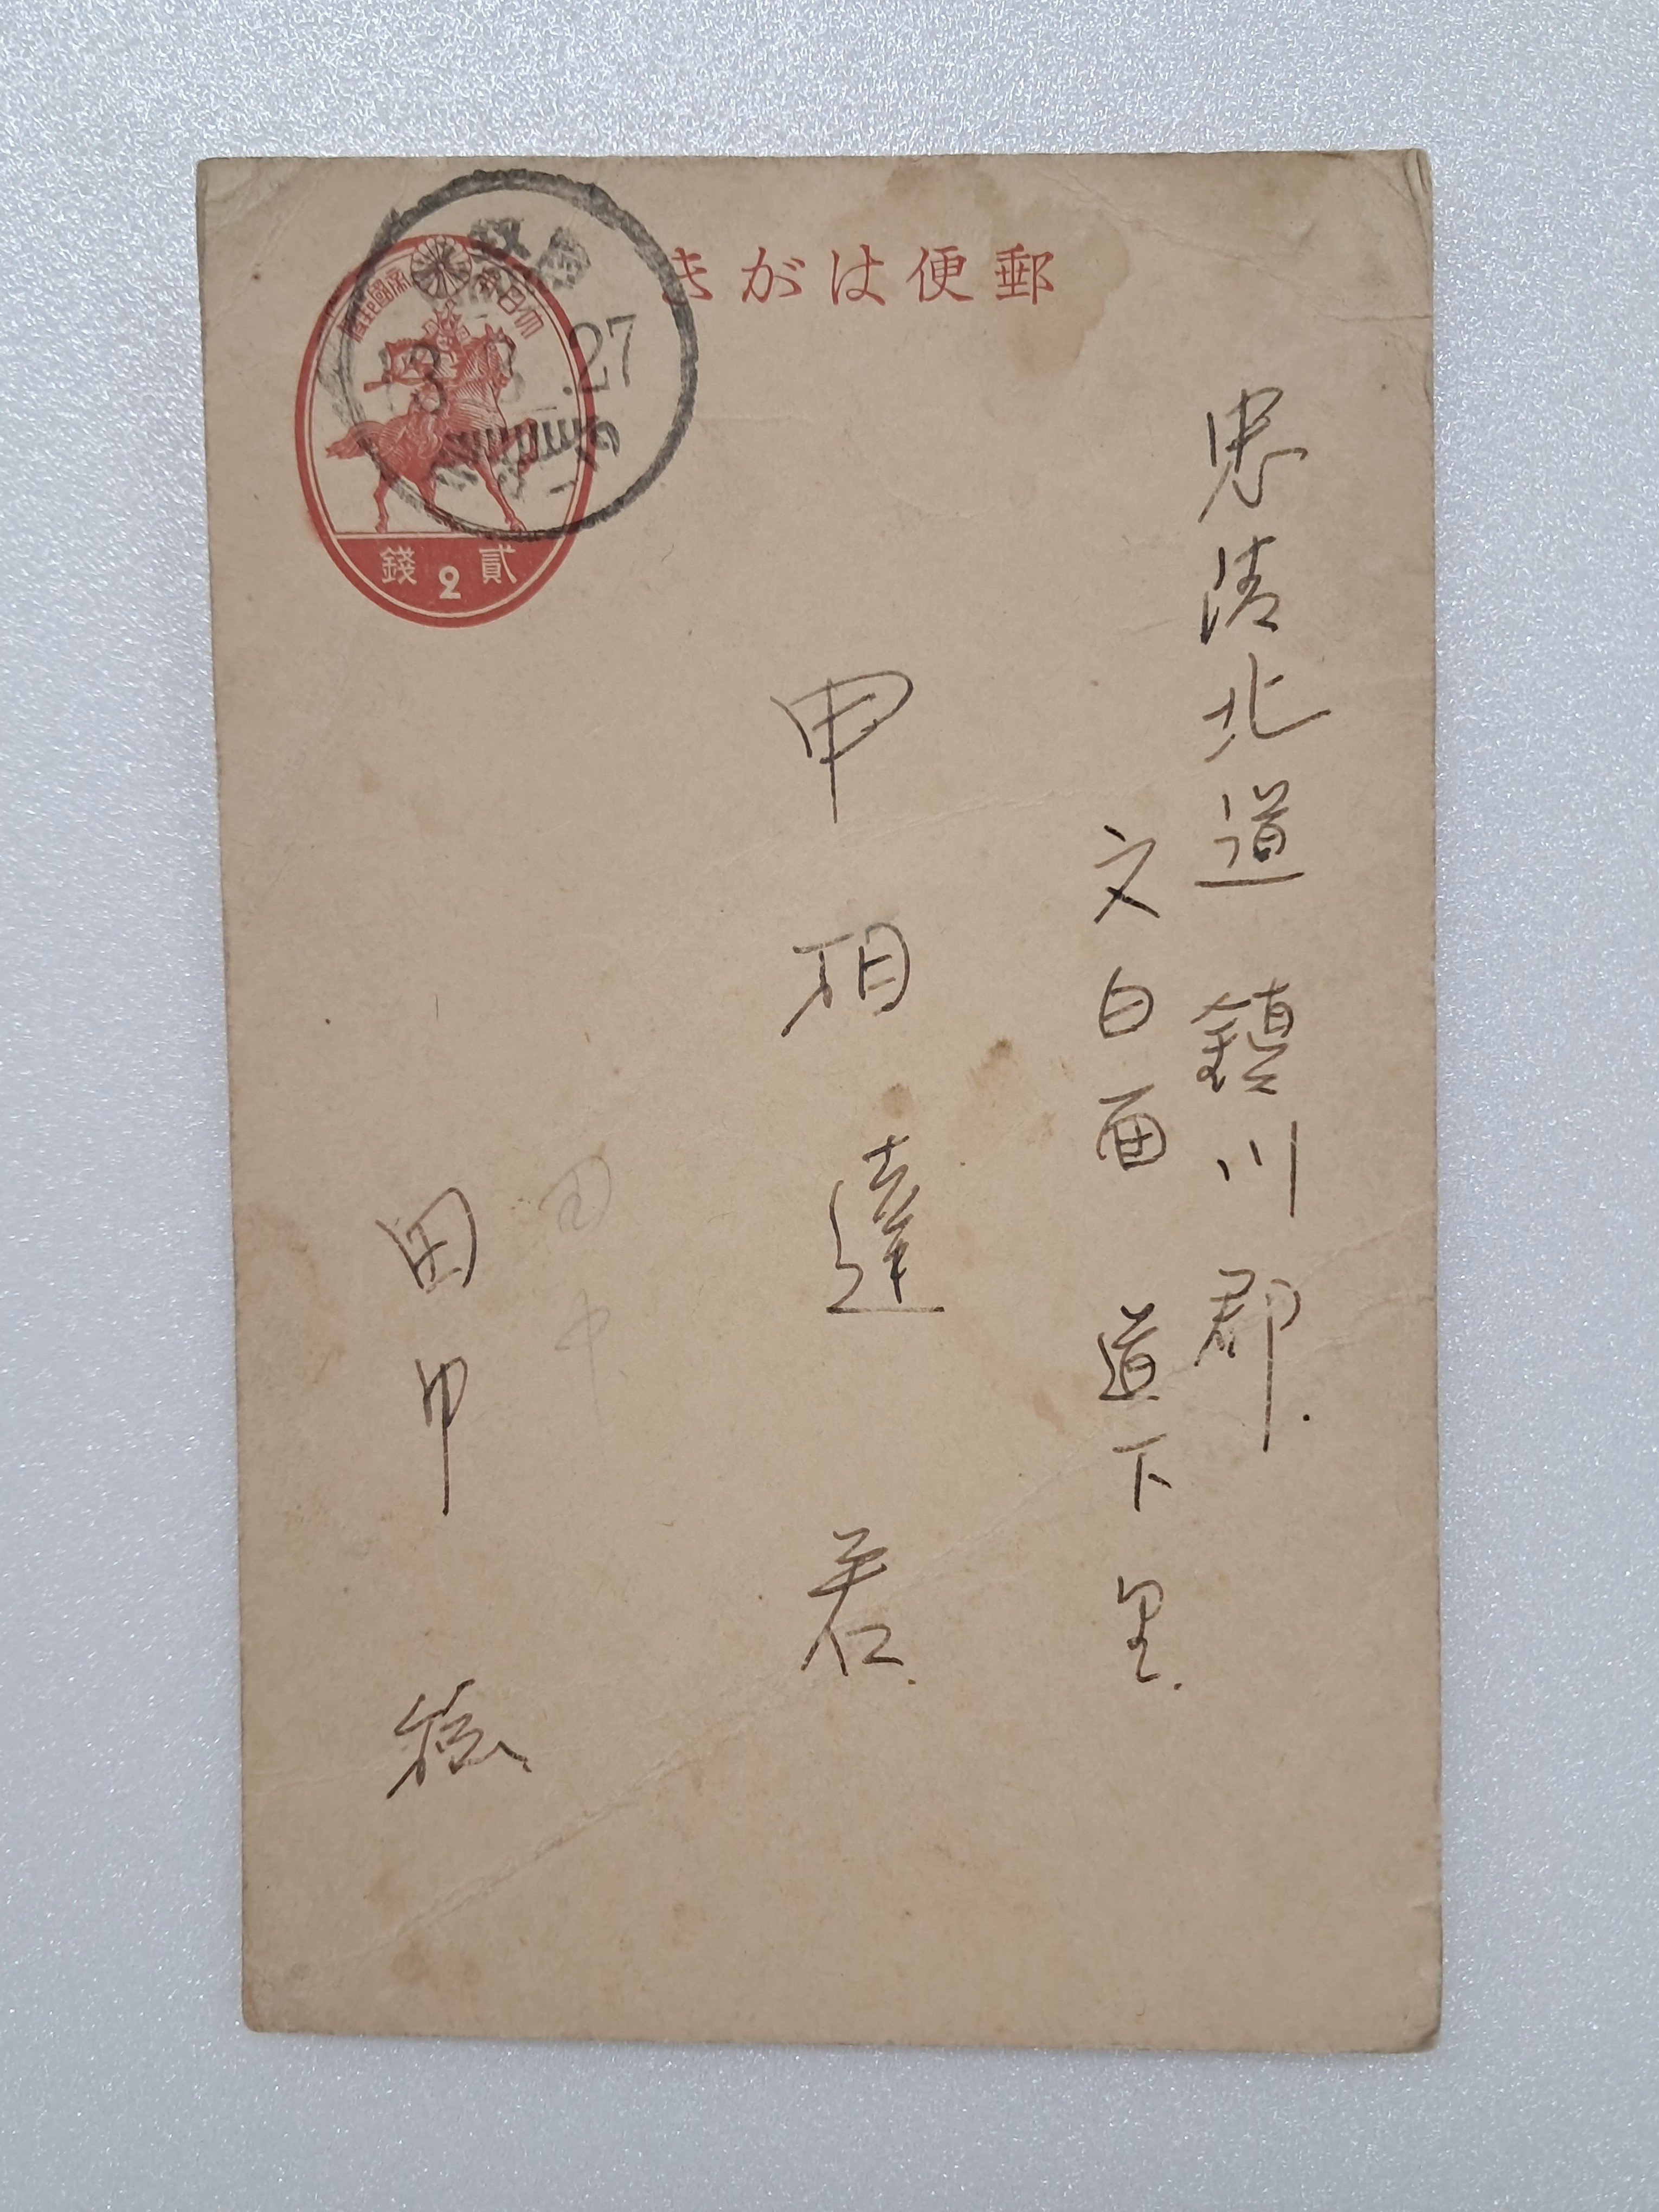 郵便はがき
大日本帝國郵便
貳 2 錢
27
忠清北道 鎮川郡.
文白面 道下里.
申相達 君.
田中
田中